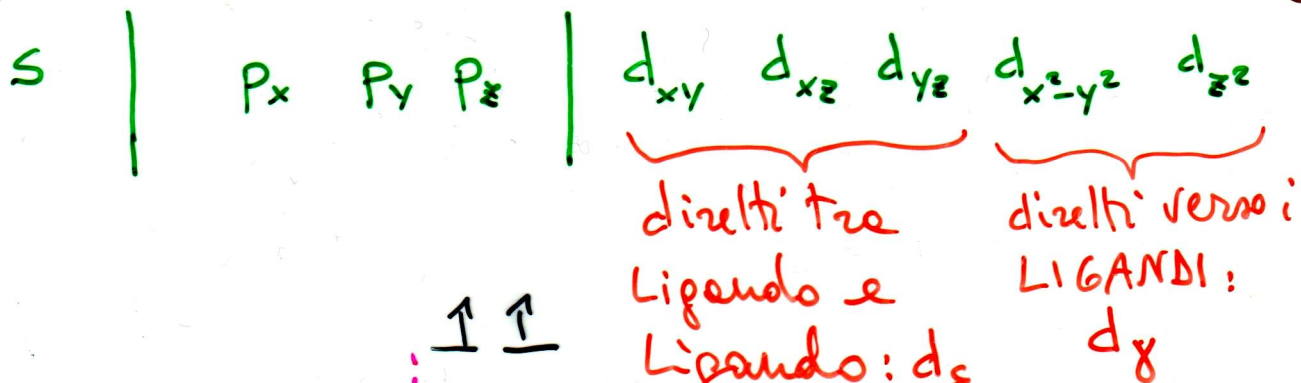 s | px py pz | dxy dxz dyz dx²-y² dz²
diretti tra
Ligando e
Ligando: dε
diretti verso i
LIGANDI:
dγ